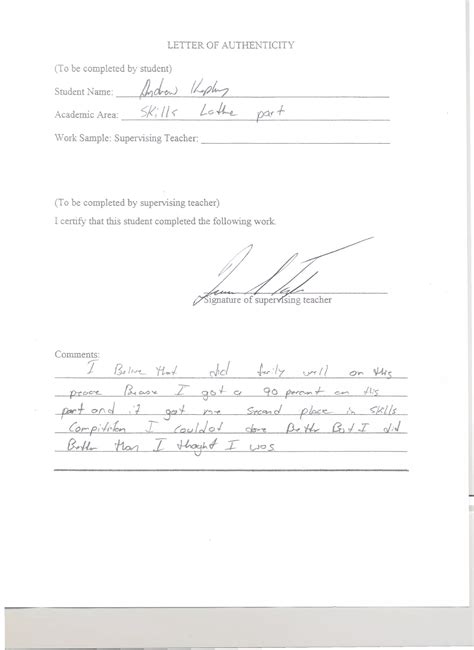 LETTER OF AUTHENTICITY
(To be completed by student)
Student Name: Andrew
Academic Area: Skills Lathe part
Work Sample: Supervising Teacher:
(To be completed by supervising teacher)
I certify that this student completed the following work.
Signature of supervising teacher
Comments:
I Belive that did fairly well on this
peace Becase I got a 90 percent on this
part and it got me second place in skills
Compitition I could of done Better But I did
Better than I thoght I was